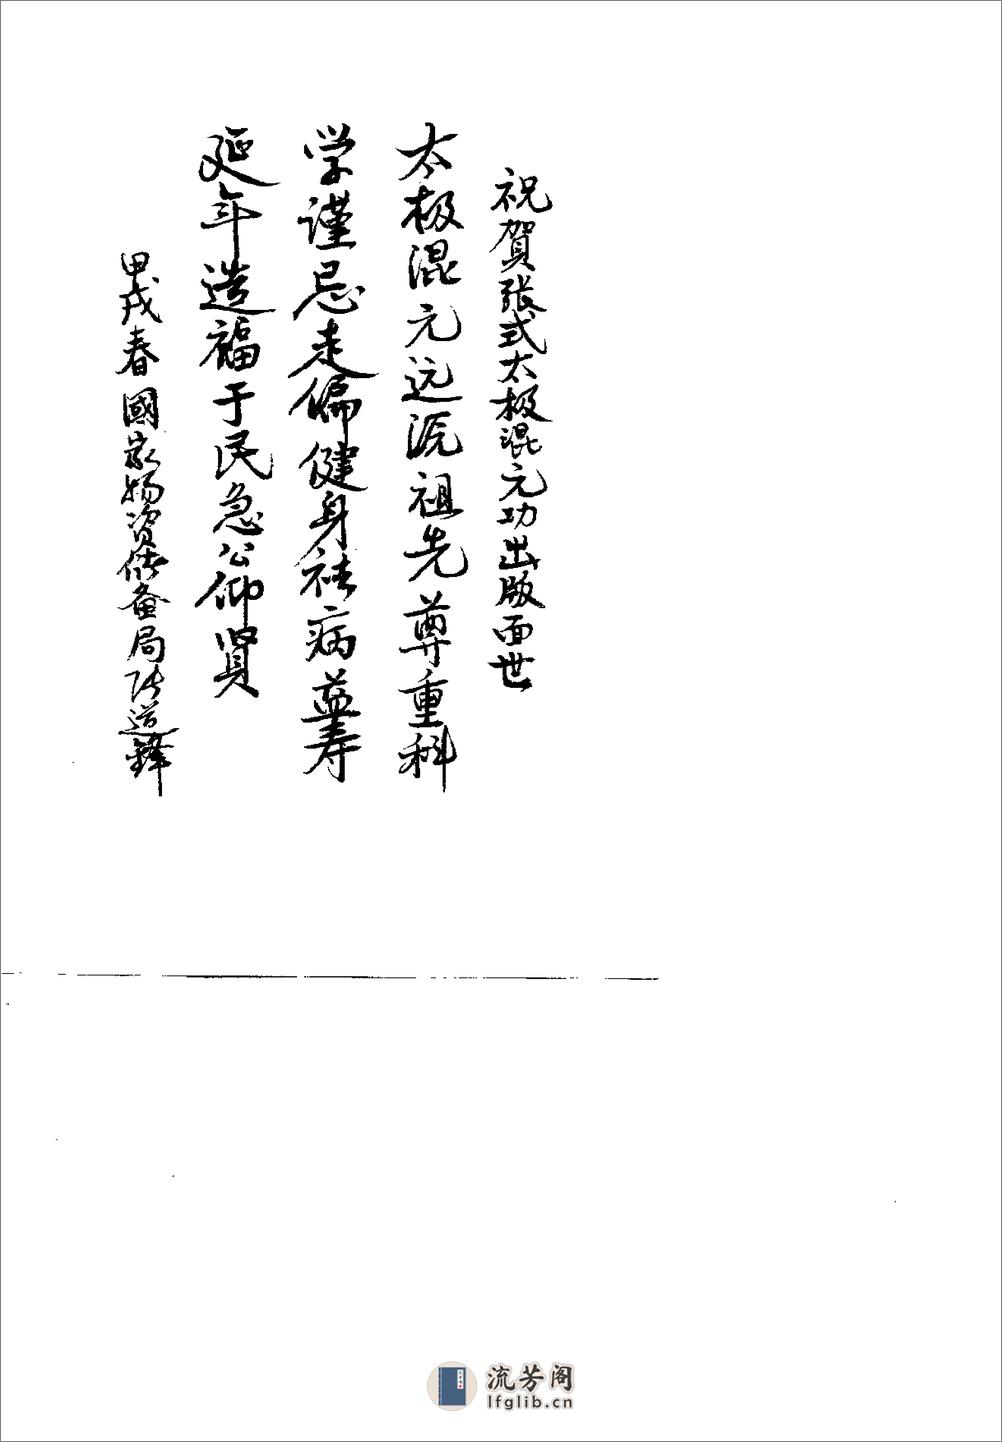 祝賀張式太极混元功出版面世
太极混元远流祖先尊重科
学谨忌走偏健身祛病益寿
延年造福于民急公仰贤
甲戌春國家物资储备局 道鋒
流芳阁
lfglib.cn